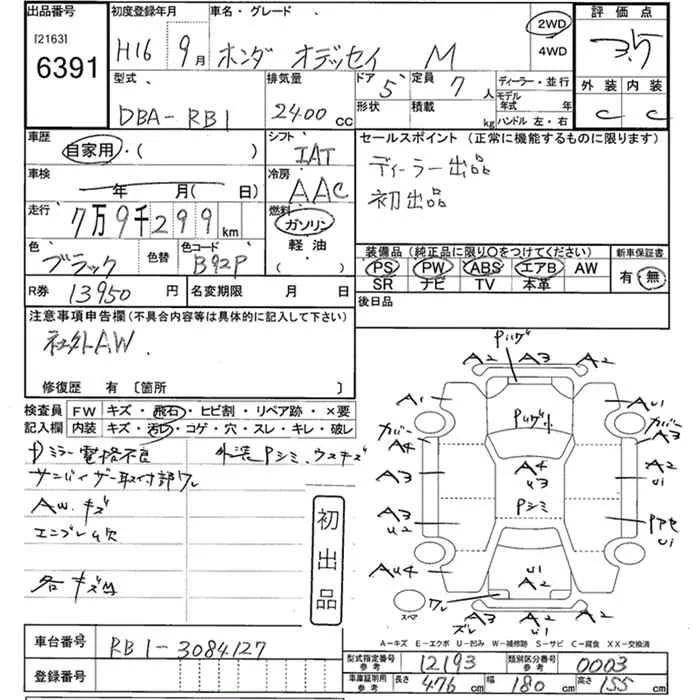 出品番号 初度登録年月 車名・グレード 評価点
[2163] 6391 H16 9月 ホンダ オデッセイ M 2WD 4WD 3.5
型式 排気量 ドア 5 定員 7人 ディーラー・並行 外装 内装
DBA-RB1 2400cc 形状 積載 kg モデル年式 年 C C
ハンドル 左・右
車歴 シフト セールスポイント (正常に機能するものに限ります)
自家用・( ) IAT ディーラー出品
車検 年 月(日) 冷房 AAC 初出品
走行 7万9千299km 燃料 ガソリン
色 ブラック 色替 色コード B92P 軽油 ( )
装備品 (純正品に限り○をつけてください) 新車保証書
PS PW ABS エアB AW 有・無
SR ナビ TV 本革
R券 13950円 名変期限 月 日 後日品
注意事項申告欄(不具合内容等は具体的に記入して下さい)
社外AW.
修復歴 有 〔箇所 〕
検査員 FW キズ・飛石・ヒビ割・リペア跡・×要
記入欄 内装 キズ・汚れ・コゲ・穴・スレ・キレ・破レ
ミラー電格不良 外装Pシミ、ウスキズ
サンバイザー取付部ワレ
AW.キズ
エンブレム欠
各キズ凹
初出品
A2 A3 A2
A1 Pハゲ AU1
カバー Pハゲ小 カバー
A4 A3
A3 A4 U3 A2 U1
A3 U2 Pシミ
U1
AU4 U1 A2
スペア ワレ
ズレ A3 A2 U1 A2
A-キズ E-エクボ U-凹み W-補修跡 S-サビ C-腐食 XX-交換済
車台番号 RB1-3084127
型式指定番号参考 12193 類別区分番号参考 0003
登録番号
車庫証明用参考 長さ 476cm 幅 180cm 高さ 155cm